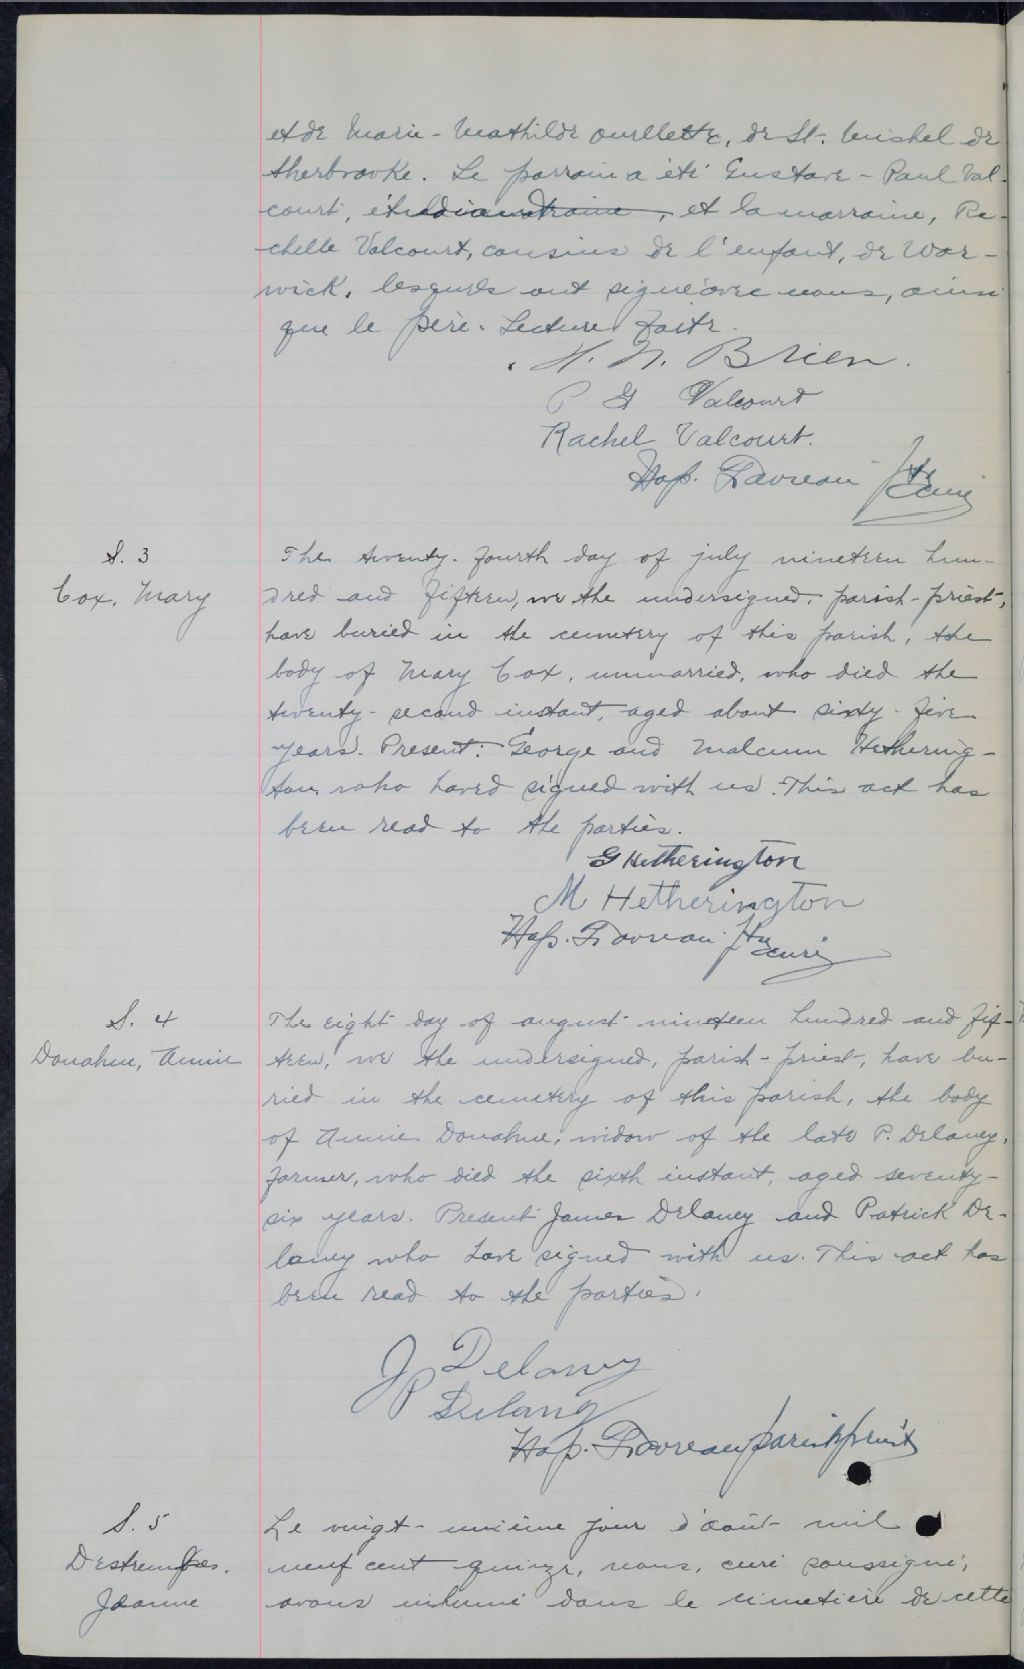 et de Marie-Mathilde Ouellette, de St. Michel de
Sherbrooke. Le parrain a été Gustave-Paul Val-
court, et la marraine, Ra-
chelle Valcourt, cousins de l'enfant, de War-
wick, lesquels ont signé avec nous, ainsi
que le père. Lecture faite.
H. N. Brien.
P G Valcourt
Rachel Valcourt.
Hap. Favreau Ptre
curé
S. 3
Cox, Mary
The twenty-fourth day of july nineteen hun-
dred and fifteen, we the undersigned, parish-priest,
have buried in the cemetery of this parish, the
body of Mary Cox, unmarried, who died the
twenty-second instant, aged about sixty-five
years. Present: George and Malcum Hethering-
ton who haved signed with us. This act has
been read to the parties.
G Hetherington
M Hetherington
Hap. Favreau Ptre
curé
S. 4
Donahue, Annie
The eight day of august nineteen hundred and fif-
teen, we the undersigned, parish-priest, have bu-
ried in the cemetery of this parish, the body
of Annie Donahue, widow of the late P. Delaney,
farmer, who died the sixth instant, aged seventy-
six years. Present James Delaney and Patrick De-
laney who have signed with us. This act has
been read to the parties.
J Delaney
P Delany
Hap. Favreau parish priest
S. 5
Destrempes,
Jeanne
Le vingt-unième jour d'août mil
neuf cent quinze, nous, curé soussigné,
avons inhumé dans le cimetière de cette